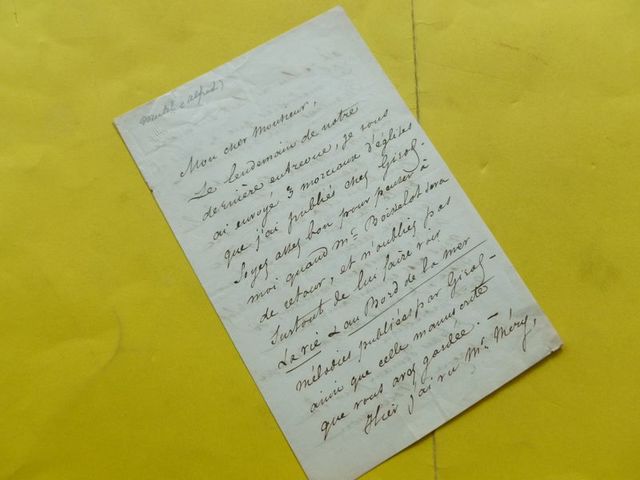 Mon cher Monsieur,
Le lendemain de notre
dernière entrevue, je vous
ai envoyé 3 morceaux d'églises
que j'ai publiés chez Girod.
Soyez assez bon pour penser à
moi quand Mr. Boisselot sera
de retour, et n'oubliez pas
surtout de lui faire voir
La vie & au Bord de la mer
mélodies publiées par Girod -
ainsi que celle manuscrite
que vous avez gardée. -
Hier j'ai vu Mr. Méry,